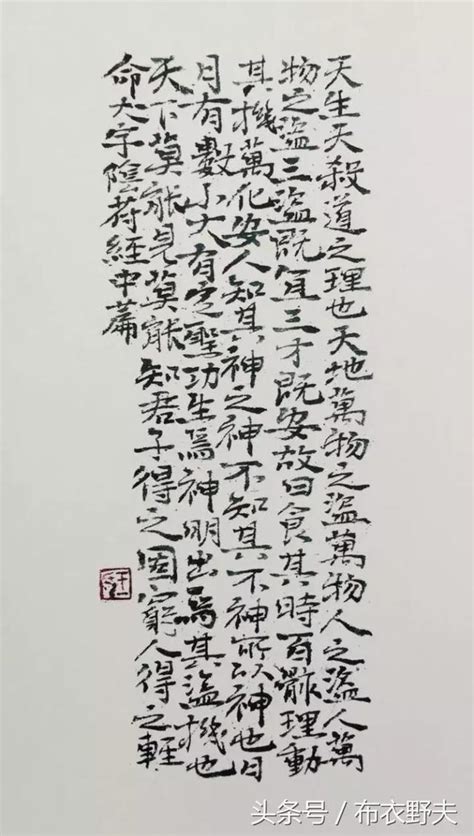 天生天殺道之理也天地萬物之盜萬物人之盜人萬
物之盜三盜既宜三才既安故曰食其時百骸理動
其機萬化安人知其神之神不知其不神所以神也日
月有數小大有定聖功生焉神明出焉其盜機也
天下莫能見莫能知君子得之固窮人得之輕
命大字陰符經中篇
头条号 / 布衣野夫